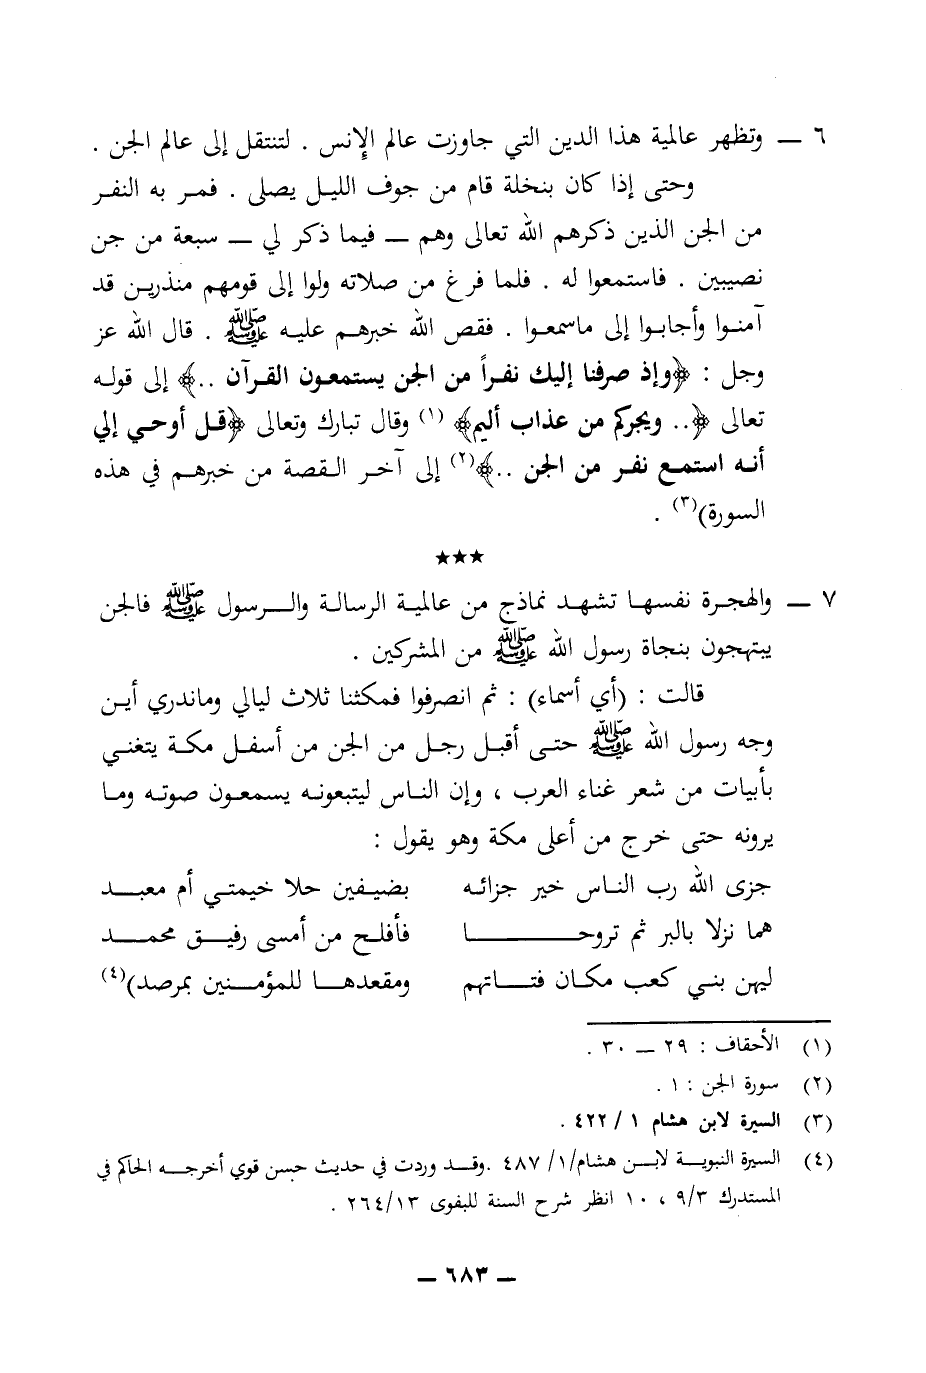 ٦ ــ وتظهر عالمية هذا الدين التي جاوزت عالم الإنس . لتنتقل إلى عالم الجن .
وحتى إذا كان بنخلة قام من جوف الليل يصلى . فمر به النفر
من الجن الذين ذكرهم الله تعالى وهم ــ فيما ذكر لي ــ سبعة من جن
نصيبين . فاستمعوا له . فلما فرغ من صلاته ولوا إلى قومهم منذرين قد
آمنوا وأجابوا إلى ماسمعوا . فقص الله خبرهم عليه ﷺ . قال الله عز
وجل : ﴿وإذ صرفنا إليك نفراً من الجن يستمعون القرآن ..﴾ إلى قوله
تعالى ﴿.. ويجركم من عذاب أليم﴾ (١) وقال تبارك وتعالى ﴿قل أوحي إلي
أنه استمع نفر من الجن ..﴾(٢) إلى آخر القصة من خبرهم في هذه
السورة)(٣) .
★★★
٧ ــ والهجرة نفسها تشهد نماذج من عالمية الرسالة والرسول ﷺ فالجن
يبتهجون بنجاة رسول الله ﷺ من المشركين .
قالت : (أي أسماء) : ثم انصرفوا فمكثنا ثلاث ليالي وماندري أين
وجه رسول الله ﷺ حتى أقبل رجل من الجن من أسفل مكة يتغنى
بأبيات من شعر غناء العرب ، وإن الناس ليتبعونه يسمعون صوته وما
يرونه حتى خرج من أعلى مكة وهو يقول :
جزى الله رب الناس خير جزائه بضيفين حلا خيمتي أم معبد
هما نزلا بالبر ثم تروحا فأفلح من أمسى رفيق محمد
ليهن بني كعب مكان فتاتهم ومقعدها للمؤمنين بمرصد)(٤)
(١) الأحقاف : ٢٩ ــ ٣٠ .
(٢) سورة الجن : ١ .
(٣) السيرة لابن هشام ١ / ٤٢٢ .
(٤) السيرة النبوية لابن هشام/١/ ٤٨٧ .وقد وردت في حديث حسن قوي أخرجه الحاكم في
المستدرك ٩/٣ ، ١٠ انظر شرح السنة للبغوى ٢٦٤/١٣ .
ــ ٦٨٣ ــ